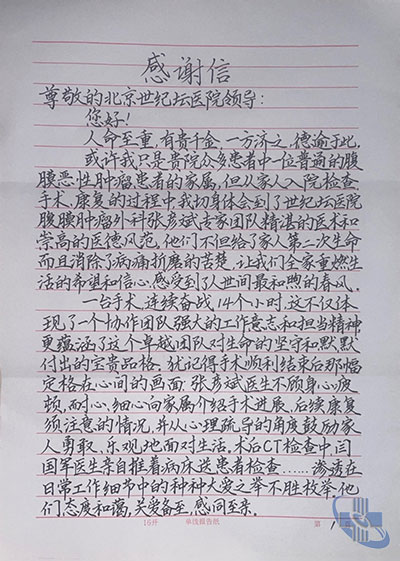 感谢信
尊敬的北京世纪坛医院领导:
您好!
人命至重,有贵千金,一方济之,德逾于此,
或许我只是贵院众多患者中一位普通的腹
膜恶性肿瘤患者的家属,但从家人入院检查、
手术、康复的过程中我切身体会到了世纪坛医院
腹膜肿瘤外科张彦斌专家团队精湛的医术和
崇高的医德风范。他们不但给了家人第二次生命
而且消除了病痛折磨的苦楚,让我们全家重燃生
活的希望和信心,感受到了人世间最和煦的春风。
一台手术,连续奋战14个小时,这不仅体
现了一个协作团队强大的工作意志和担当精神
更蕴涵了这个卓越团队对生命的坚守和默默
付出的宝贵品格。犹记得手术顺利结束后那幅
定格在心间的画面:张彦斌医生不顾身心疲
顿,耐心、细心向家属介绍手术进展、后续康复
须注意的情况,并从心理疏导的角度鼓励家
人勇敢、乐观地面对生活。术后CT检查中,闫
国军医生亲自推着病床送患者检查……渗透在
日常工作细节中的种种大爱之举不胜枚举。他
们态度和蔼,关爱备至,感同至亲。
16开 单线报告纸 第 1